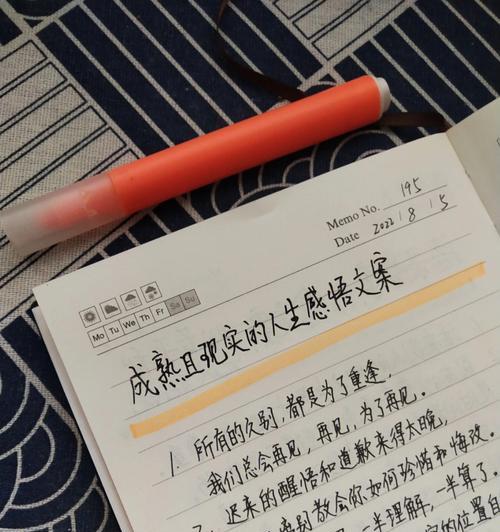 Memo No. 195
Date 2022 / 8 / 5
Mo Tu We Th Fr Sa Su
成熟且现实的人生感悟文案
1. 所有的久别,都是为了重逢,
我们总会再见,再见,为了再见。
2. 迟来的醒悟和道歉来得太晚,
离别教会你如何珍惜和悔改。
一半理解,一半算了。
的位置